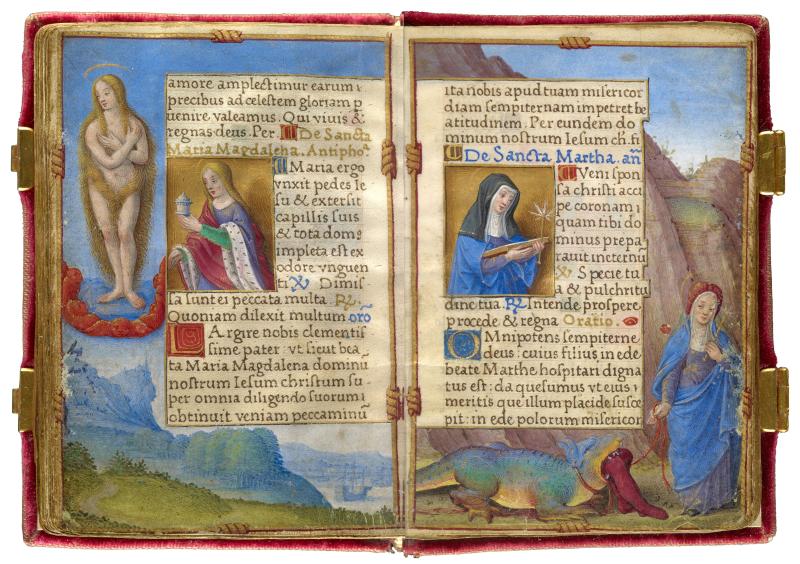 amore amplectimur earum i
precibus ad celestem gloriam p
uenire valeamus. Qui viuis &
regnas deus. Per. De Sancta
Maria Magdalena. Antipho.
Maria ergo
vnxit pedes Ie
su & extersit
capillis suis
& tota dom9
impleta est ex
odore vnguen
ti. V Dimis
sa sunt ei peccata multa. R.
Quoniam dilexit multum orõ
Largire nobis clementis
sime pater: vt sicut bea
ta Maria Magdalena dominũ
nostrum Iesum christum su
per omnia diligendo suorum
obtinuit veniam peccaminũ
ita nobis apud tuam misericor
diam sempiternam impetret be
atitudinem. Per eundem do
minum nostrum Iesum ch. fi
De Sancta Martha. añ
Veni spon
sa christi acci
pe coronam
quam tibi do
minus prepa
rauit in eternũ
V Specie tu
a & pulchritu
dine tua. R. Intende prospere
procede & regna Oratio.
Omnipotens sempiterne
deus: cuius filius in ede
beate Marthe hospitari digna
tus est: da quesumus vt eius
meritis que illum placide susce
pit: in ede polorum misericor